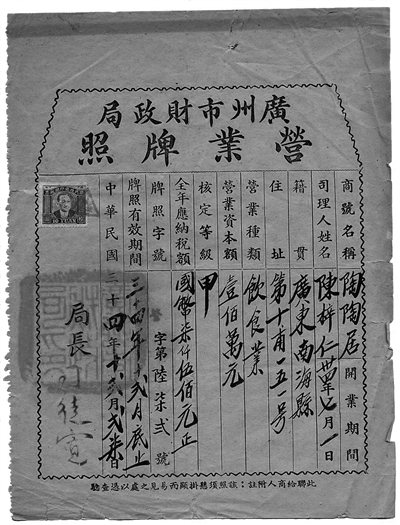 廣州市財政局
營業牌照
商號名稱 陶陶居 開業期間
司理人姓名 陳梓仁 卅四年 月一日
籍貫 廣東南海縣
住址 第十甫一五一号
營業種類 飲食業
營業資本額 壹佰萬元
核定等級 甲
全年應納稅額 國幣柒仟伍佰元正
牌照字號 字第陸柒弍號
牌照有效期間 三十四年十弍月底止
中華民國三十四年十弍月弍柒日
局長
此聯給商人附註：該照須懸掛顯而易見之處以憑查驗